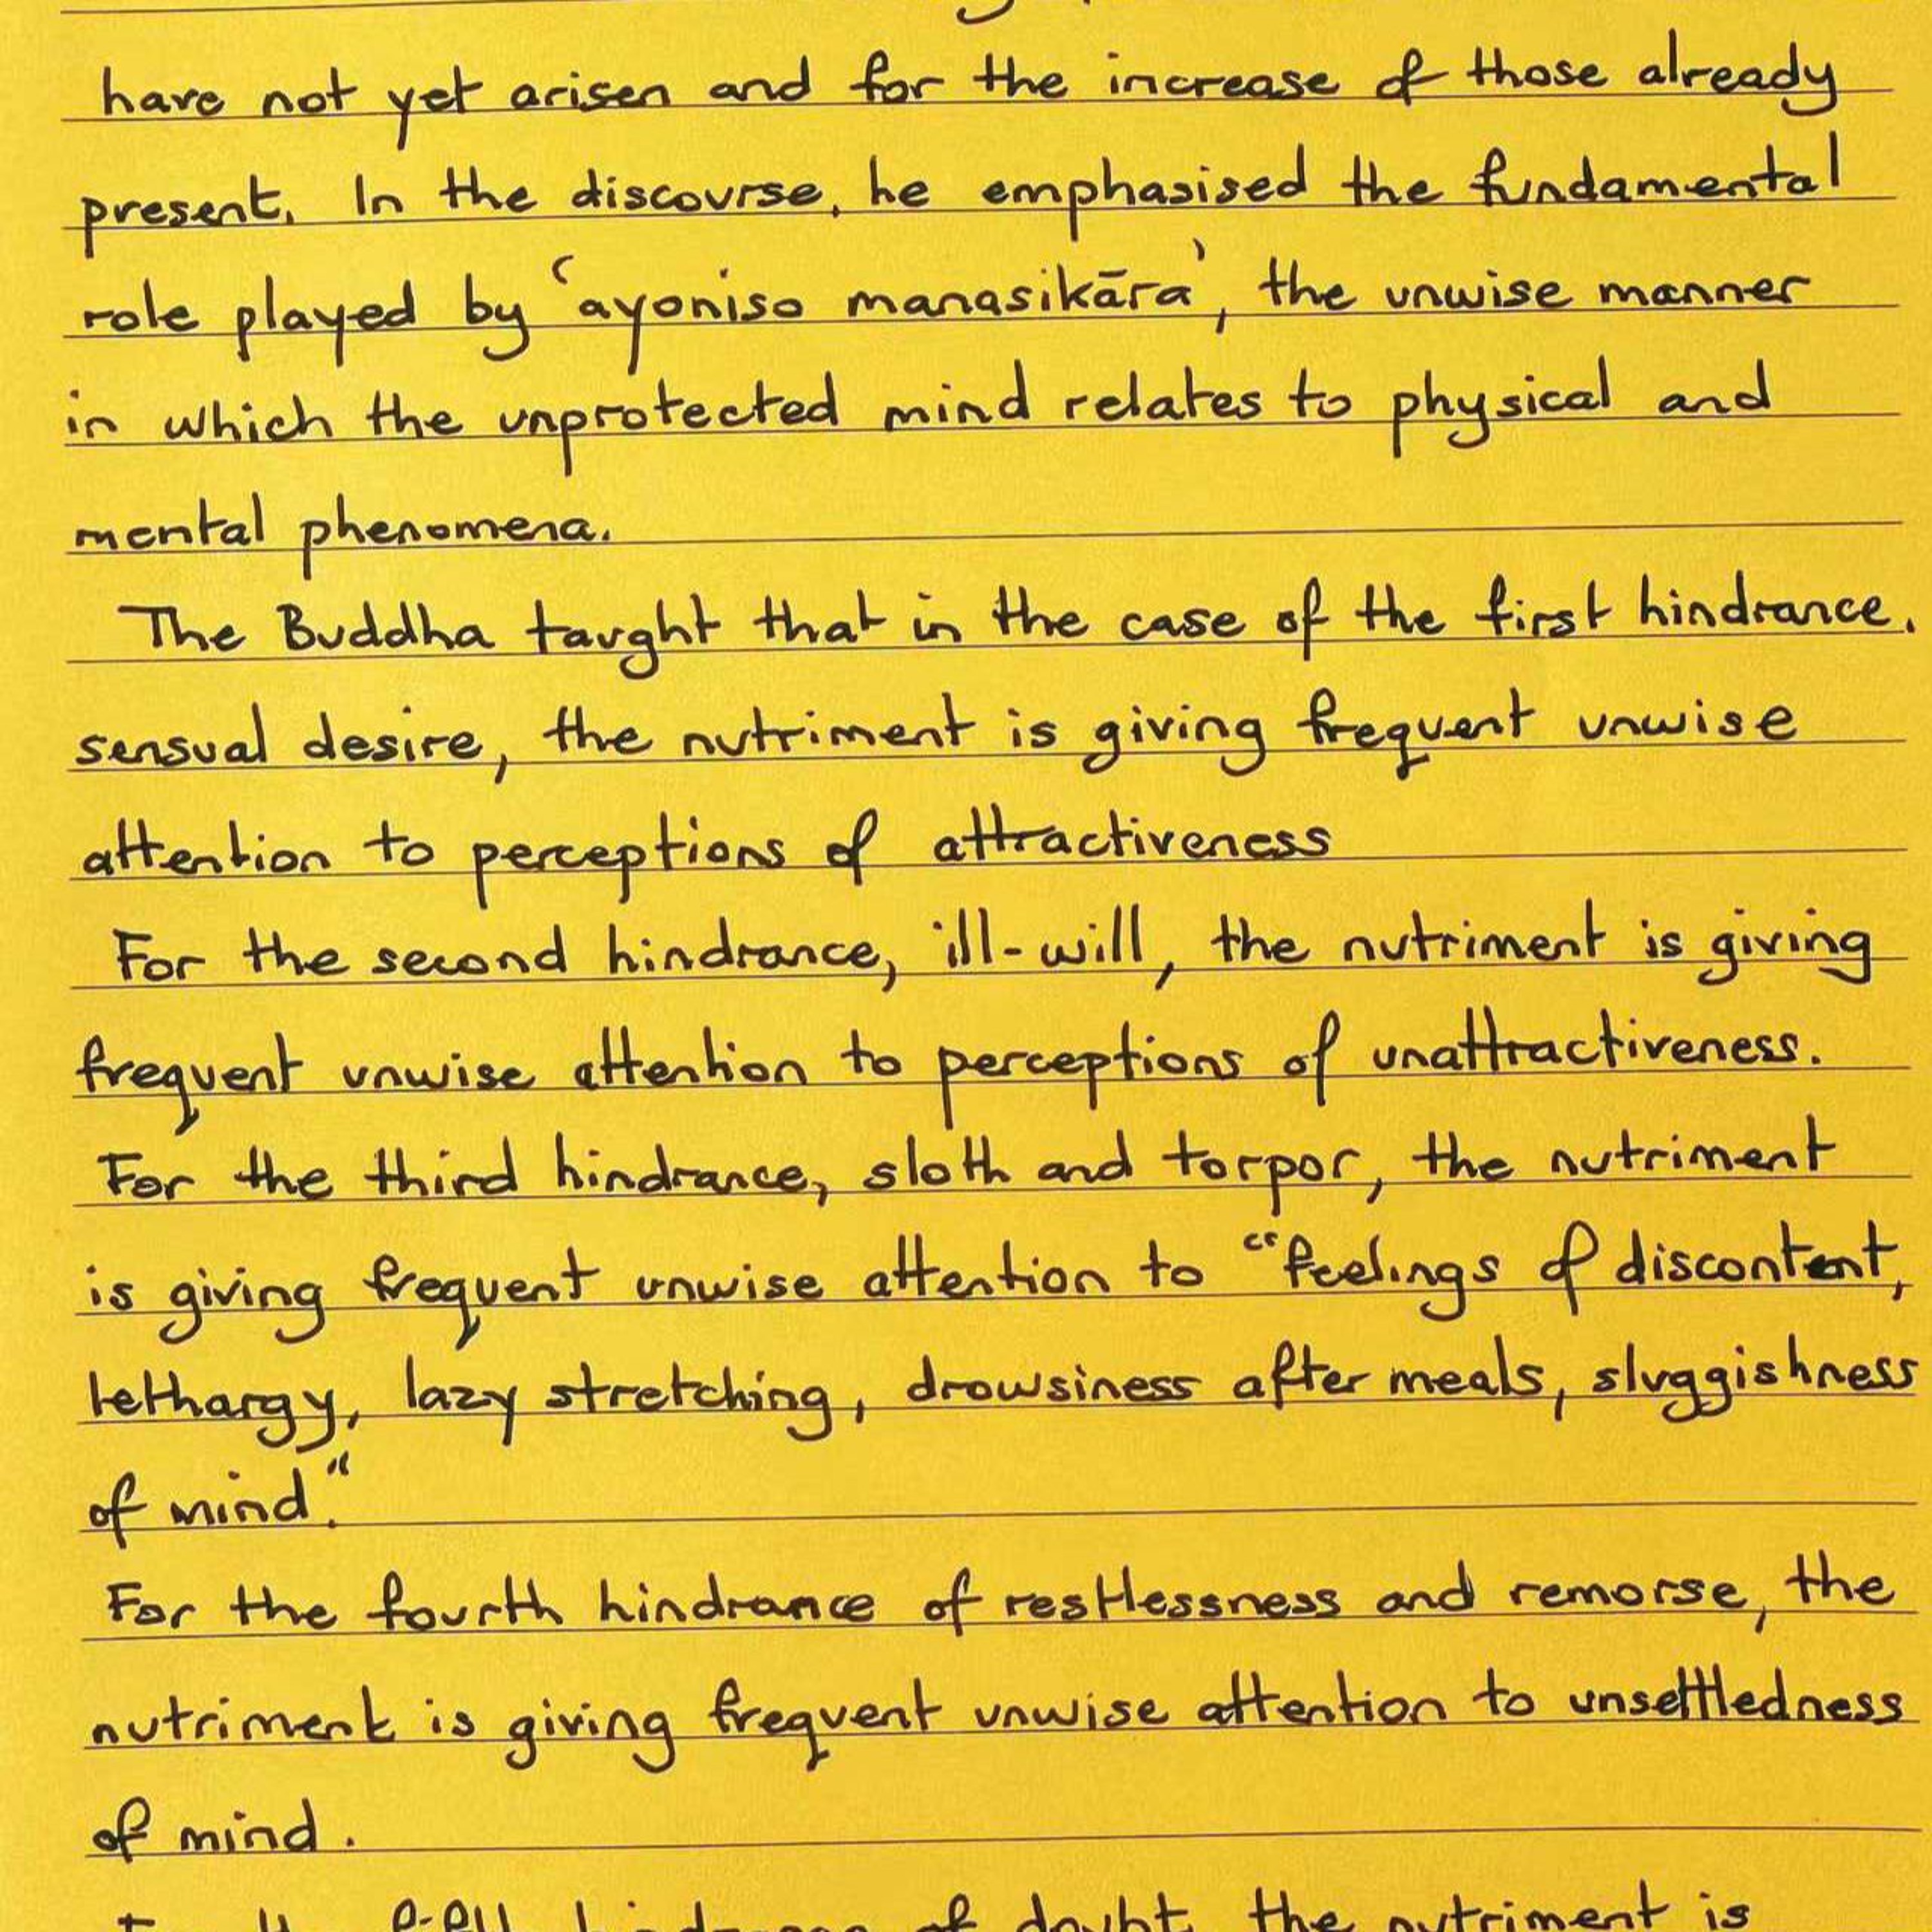 have not yet arisen and for the increase of those already
present. In the discourse, he emphasised the fundamental
role played by 'ayoniso manasikāra', the unwise manner
in which the unprotected mind relates to physical and
mental phenomena.
The Buddha taught that in the case of the first hindrance,
sensual desire, the nutriment is giving frequent unwise
attention to perceptions of attractiveness
For the second hindrance, ill-will, the nutriment is giving
frequent unwise attention to perceptions of unattractiveness.
For the third hindrance, sloth and torpor, the nutriment
is giving frequent unwise attention to "feelings of discontent,
lethargy, lazy stretching, drowsiness after meals, sluggishness
of mind."
For the fourth hindrance of restlessness and remorse, the
nutriment is giving frequent unwise attention to unsettledness
of mind.
of doubt, the nutriment is